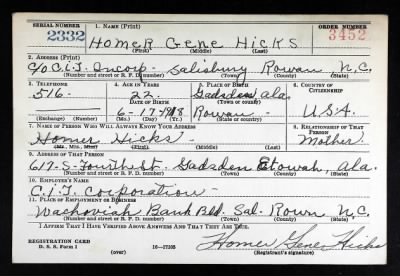 SERIAL NUMBER 1. NAME (Print) ORDER NUMBER
2332 Homer Gene Hicks 3452
(First) (Middle) (Last)
2. ADDRESS (Print)
C/O C.I.T. Incorp- Salisbury Rowan N.C.
(Number and street or R. F. D. number) (Town) (County) (State)
3. TELEPHONE 4. AGE IN YEARS 5. PLACE OF BIRTH 6. COUNTRY OF CITIZENSHIP
516- 22 Gadsden Ala.
DATE OF BIRTH (Town or county)
6-17-1918 Rowan- U.S.A.
(Mo.) (Day) (Yr.) (State or country)
7. NAME OF PERSON WHO WILL ALWAYS KNOW YOUR ADDRESS 8. RELATIONSHIP OF THAT PERSON
Homer Hicks Mother
(Mr., Mrs., Miss) (First) (Middle) (Last)
9. ADDRESS OF THAT PERSON
617-S-Fourth St. Gadsden Etowah, Ala.
(Number and street or R. F. D. number) (Town) (County) (State)
10. EMPLOYER'S NAME
C.I.T. Corporation-
11. PLACE OF EMPLOYMENT OR BUSINESS
Wachoviah Bank Bld. Sal- Rown N.C.
(Number and street or R. F. D. number) (Town) (County) (State)
I AFFIRM THAT I HAVE VERIFIED ABOVE ANSWERS AND THAT THEY ARE TRUE.
REGISTRATION CARD
D. S. S. Form 1 (over) 16—17105 Homer Gene Hicks